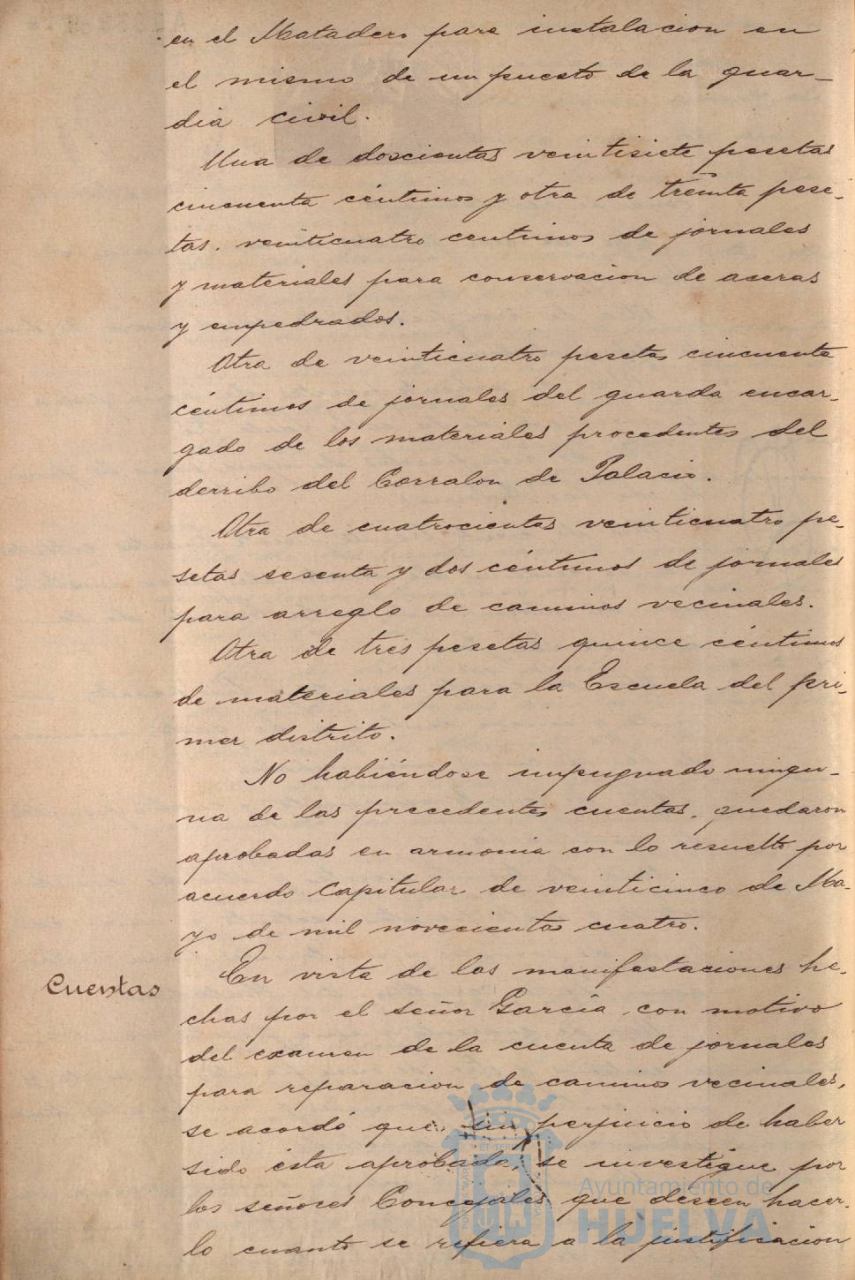 en el Matadero para instalacion en
el mismo de un puesto de la guar-
dia civil.
Una de doscientas veintisiete pesetas
cincuenta céntimos y otra de treinta pese-
tas. veinticuatro centimos de jornales
y materiales para conservacion de aceras
y empedrados.
Otra de veinticuatro pesetas cincuenta
céntimos de jornales del guarda encar-
gado de los materiales procedentes del
derribo del Corralon de Palacio.
Otra de cuatrocientas veinticuatro pe-
setas sesenta y dos céntimos de jornales
para arreglo de caminos vecinales.
Otra de tres pesetas quince céntimos
de materiales para la Escuela del pri-
mer distrito.
No habiéndose impugnado ningu-
na de las precedentes cuentas, quedaron
aprobadas en armonia con lo resuelto por
acuerdo Capitular de veinticinco de Ma-
yo de mil novecientos cuatro.
Cuentas
En vista de las manifestaciones he-
chas por el señor García con motivo
del examen de la cuenta de jornales
para reparacion de caminos vecinales,
se acordó que, sin perjuicio de haber
sido ésta aprobada, se investigue por
los señores Concejales que deseen hacer-
lo cuanto se refiera a la justificacion
Ayuntamiento de
HUELVA